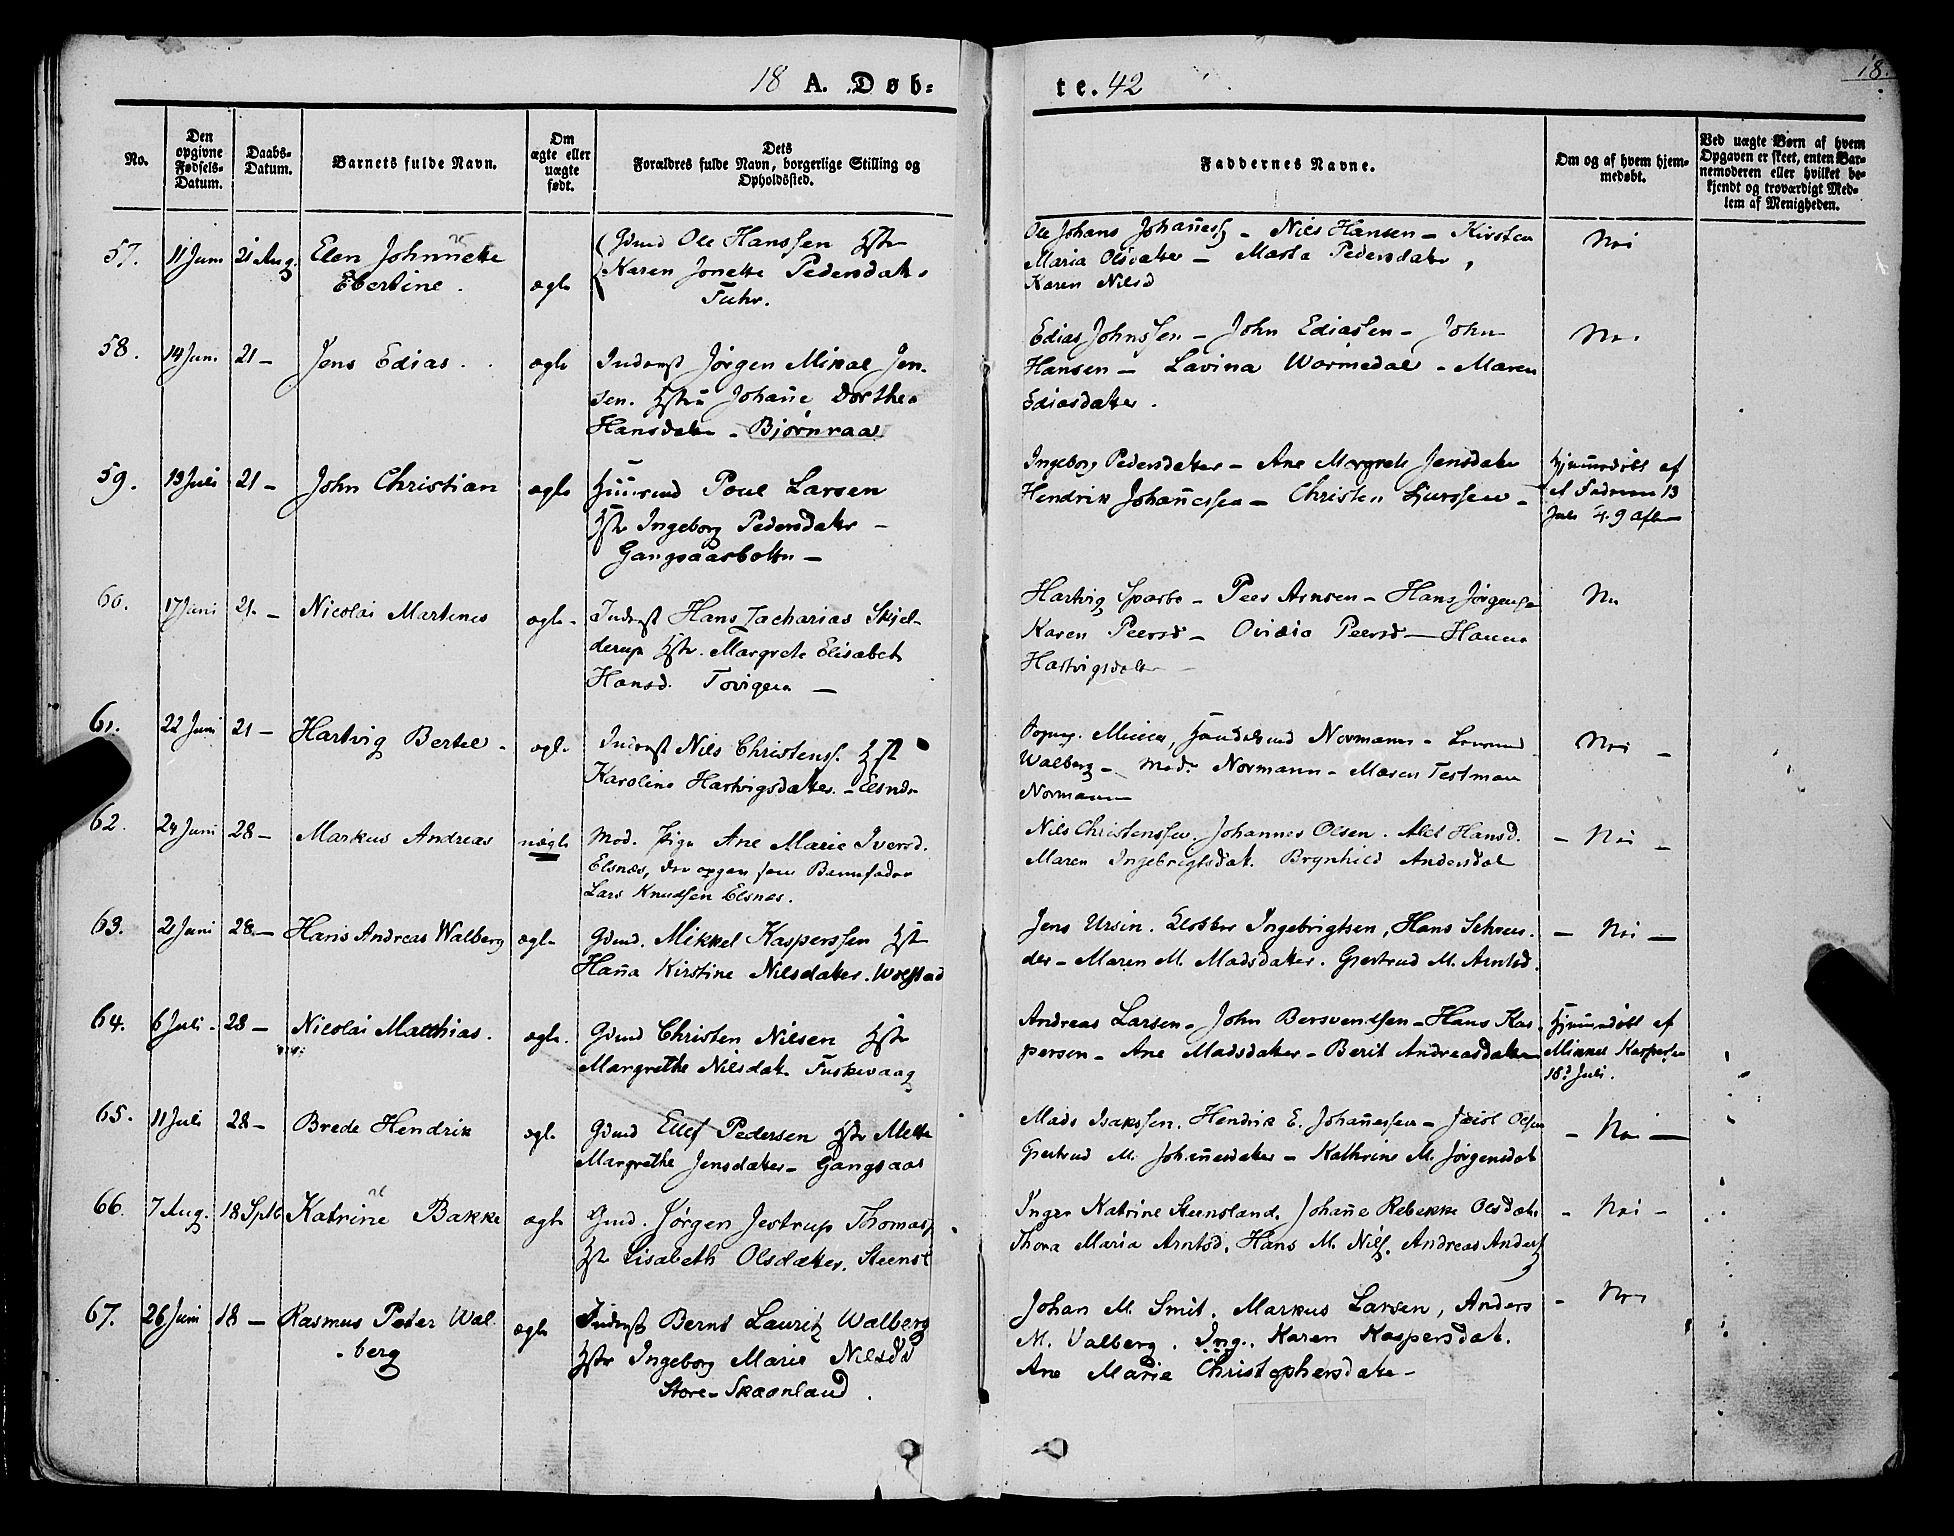 18 A. Døb= te. 42
18.
No.
Den opgivne Fødsels-Datum.
Daabs-Datum.
Barnets fulde Navn.
Om ægte eller uægte født.
Dets Forældres fulde Navn, borgerlige Stilling og Opholdssted.
Faddernes Navne.
Om og af hvem hjemmedøbt.
Ved uægte Børn af hvem Opgaven er skeet, enten Barnemoderen eller hvilket bekjendt og troværdigt Medlem af Menigheden.
57. 11 Juni 21 Aug. Elen Johnnette
Ebertine. ægte
Gmd Ole Hanssen Hstr
Karen Jonette Pedersdatr
Fuhr.
Ole Johans Johan̄ess – Nils Hansen – Kirsten
Maria Olsdatter – Marta Pedersdater,
Karen Nilsd
Nei
58. 14 Juni 21 – Jens Edias. ægte
Inderst Jørgen Mikal Jen-
sen. Hstru Johan̄e Dorthea
Hansdater – Bjørnraa.
Edias Johnssen – John Ediassen – John
Hansen – Lavina Wormedal – Maren
Ediasdatter.
Nei
59. 13 Juli 21 – John Christian ægte
Huusmd Poul Larsen
Hstr Ingeborg Pedersdatter –
Gangsaasbotten –
Ingeborg Pedersdatter – Ane Margrete Jensdater
Hendrik Johan̄essen – Christen Sjurssen –
Hjemmedøbt af
Faderen 13
Juli 9 Aften
60. 17 Juni 21. – Nicolai Martines ægte –
Inderst Hans Zacharias Skjel-
derup Hstr. Margrete Elisabet
Hansd. Tovigen –
Hartvig Sparbo – Peer Arnsen – Hans Jørgens
Karen Peersd – Ovidia Peersd – Hanna
Hartvigsdatter –
Nei
61. 22 Juni 21 – Hartvig Bertel – ægte
Inderst Nils Christens. Hst
Karoline Hartvigsdatter. – Elsnes
Handelsmd Normann –
Walberg – Mad. Normann – Maren Testman
Normann
Nei –
62. 24 Juni 28 – Markus Andreas uægte
Mod. Pige Ane Marie Iversd.
Elsnæs, der opgav som Barnefader
Lars Knudsen Elsnes.
Nils Christenssen. Johannes Olsen. Alet Hansd.
Maren Ingebrigtsdat. Brynhild Andersdat
– Nei –
63. 21 Juni 28 – Hans Andreas Walberg ægte
Gmd. Mikkel Kasperssen Hst
Han̄a Kirstine Nilsdater. Wolstad
Jens Ursin. Klokker Ingebrigtsen, Hans Schreu-
der – Maren M. Madsdater. Gjertrud M. Arntsd.
– Nei –
64. 6 Juli – 28 – Nicolai Matthias. ægte.
Gmd Christen Nilsen Hstr
Margrethe Nilsdat. Fuskevaag
Andreas Larsen – John Bersvendsen – Hans Kas-
persen – Ane Madsdater – Berit Andreasdater
Hjemmedøbt af
Mikkel Kaspersen
18de Juli.
65. 11 Juli 28 – Brede Hendrik ægte
Gmd Ellef Pedersen Hstr Mette
Margrethe Jensdater – Gangsaas
Mads Isakssen. Hendrik E. Johan̄essen – Jacob Olsen
Gjertrud M. Johan̄esdater – Kathrine M. Jørgensdat
– Nei –
66. 7 Aug. 18 Sptb Katrine Bakke ægte
Gmd. Jørgen Jestrup Thomass
Hst Lisabeth Olsdatter. Steensl
Inger Katrine Steensland. Johan̄e Rebekke Olsdatr
Thora Maria Arntsd. Hans M. Nils. Andreas Anders
– Nei –
67. 26 Juni 18 – Rasmus Peter Wal-
berg ægte
Inderst Bernt Lauritz Walberg
Hstr Ingeborg Marie Nilsd
Store – Skaanland.
Johan M. Smit. Markus Larsen, Anders
M. Valberg. Ing. Karen Kaspersdat.
Ane Marie Christophersdater –
– Nei